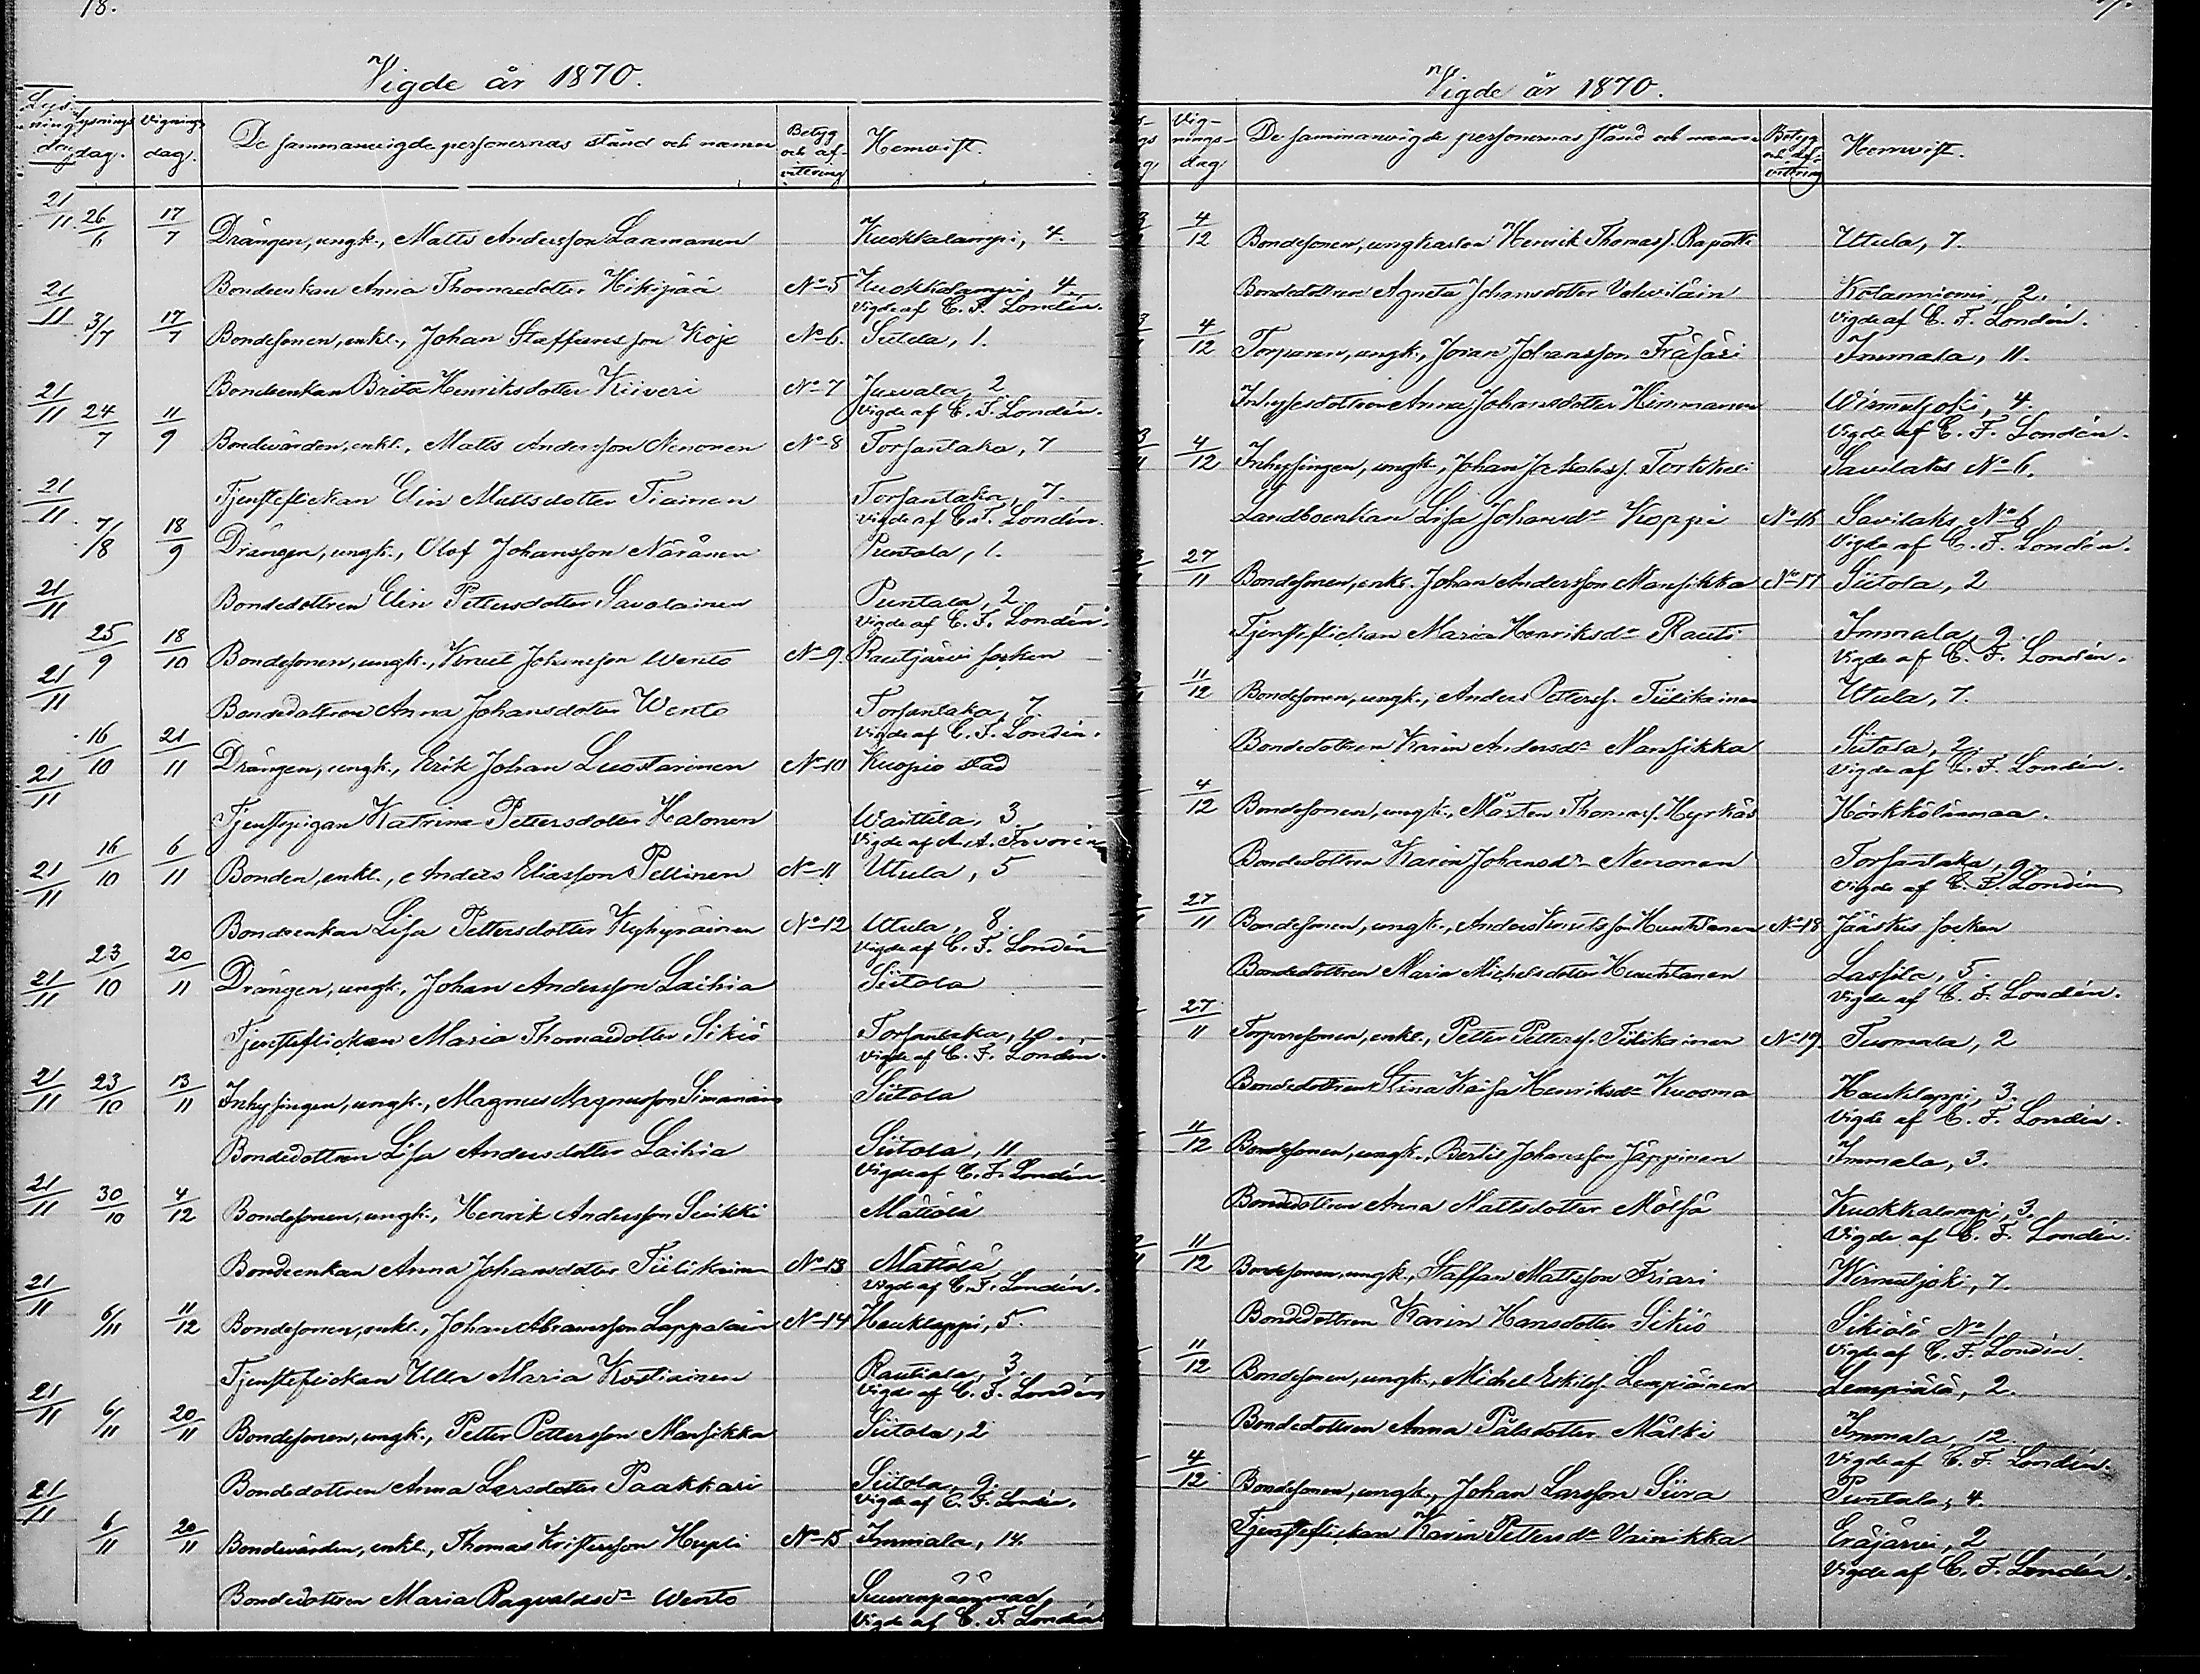 18.
Vigde år 1870.
Lysnings dag. Vignings dag. De sammanvigde personernas stånd och namn Betyg och afvittring Hemvist.
21/11 26/6 17/7 Drängen, ungk., Matts Andersson Laamanen Kuokkalampi, 4.
Bondeenkan Anna Thomaedotter Hikipää No 5 Kuokkalampi, 4
Vigde af C. F. Londén.
21/11 3/7 17/7 Bondesonen, enkl., Johan Staffansson Kojo No 6. Siitola, 1.
Bondeenkan Brita Henriksdotter Kiiveri No 7 Juvala, 2
Vigde af C. F. Londén.
21/11 24/7 11/9 Bondevärden, enkl., Matts Andersson Nenonen No 8 Torsantaka, 7
Tjensteflickan Elin Mattsdotter Tiainen Torsantaka, 7.
Vigde af C. F. Londén.
21/11 7/8 18/9 Drängen, ungk., Olof Johansson Näränen Puntala, 1.
Bondedottren Elin Pettersdotter Savolainen Puntala, 2
Vigde af C. F. Londén.
21/11 25/9 18/10 Bondesonen, ungk., Knut Johansson Wento No 9. Rautjärvi socken
Bondedottren Anna Johansdotter Wento Torsantaka, 7.
Vigde af C. F. Londén.
21/11 16/10 21/11 Drängen, ungk., Erik Johan Luostarinen No 10 Kuopio stad
Tjenstepigan Katrina Pettersdotter Halonen Waittila, 3
Vigde af A. A. Favorin
21/11 16/10 6/11 Bonden, enkl., Anders Eliasson Pellinen No 11 Utula, 5
Bondeenkan Lisa Pettersdotter Kyhyräinen No 12 Utula, 8
Vigde af C. F. Londén
21/11 23/10 20/11 Drängen, ungk., Johan Andersson Laihia Siitola
Tjensteflickan Maria Thomaedotter Sikiö Torsantaka, 10
Vigde af C. F. Londén.
21/11 23/10 13/11 Inhysingen, ungk., Magnus Magnusson Simanain Siitola
Bondedottren Lisa Andersdotter Laihia Siitola, 11
Vigde af C. F. Londén.
21/11 30/10 4/12 Bondesonen, ungk., Henrik Andersson Sinkki Mättölä
Bondeenkan Anna Johansdotter Tiilikain No 13 Mättölä
Vigde af C. F. Londén.
21/11 6/11 11/12 Bondesonen, enkl., Johan Abramsson Lappalain No 14 Hauklappi, 5.
Tjensteflickan Ulla Maria Kostiainen Rautiala, 3.
Vigde af C. F. Londén
21/11 6/11 20/11 Bondesonen, ungk., Petter Pettersson Mansikka Siitola, 2
Bondedottren Anna Larsdotter Paakkari Siitola, 9.
Vigde af C. F. Londén.
21/11 6/11 20/11 Bondevärden, enkl., Thomas Kristersson Hupli No 15 Immala, 14
Bondedottren Maria Ragvaldsdr Wento Suurenpäänmad,
Vigde af C. F. Londén
Vigde år 1870.
Vignings dag De sammanvigde personernas stånd och namn Betyg och afvittring Hemvist.
4/12 Bondesonen, ungkarlen Henrik Thomass. Raportti Utula, 7.
Bondedottren Agneta Johansdotter Valvilain Kotaniemi, 2.
Vigde af C. F. Londén.
4/12 Torparen, ungk., Jöran Johansson Fräsäri Immala, 11.
Inhysesdottren Anna Johansdotter Himmanen Wirmutjoki, 4
Vigde af C. F. Londén.
4/12 Inhysingen, ungk., Johan Jakobss. Torkkeli Savilaks No 6.
Landboenkan Lisa Johansdr Koppi No 16 Savilaks, No 6
Vigde af C. F. Londén.
27/11 Bondesonen, enkl. Johan Andersson Mansikka No 17 Siitola, 2
Tjensteflickan Maria Henriksdr Rauti Immala, 9.
Vigde af C. F. Londén.
11/12 Bondesonen, ungk., Anders Petterss. Tiilikainen Utula, 7.
Bondedottren Karin Andersdr Mansikka Siitola, 2.
Vigde af C. F. Londén.
4/12 Bondesonen, ungk., Mårten Thomass. Hyrkäs Härkkölänmaa.
Bondedottren Karin Johansdr Nenonen Torsantaka, 9
Vigde af C. F. Londén
27/11 Bondesonen, ungk., Anders Knutsson Huuhtanen No 18 Jääskis socken
Bondedottren Maria Michelsdotter Huuhtanen Lassila, 5.
Vigde af C. F. Londén.
27/11 Torparesonen, enkl., Petter Petterss. Tiilikainen No 19. Tuomala, 2
Bondedottren Stina Kaisa Henriksdr Kuosma Hauklappi, 3.
Vigde af C. F. Londén.
11/12 Bondesonen, ungk., Bertil Johansson Jäppinen Immala, 3.
Bondedottren Anna Mattsdotter Mölsä Kuokkalampi, 3.
Vigde af C. F. Londén.
11/12 Bondesonen, ungk., Staffan Mattsson Friari Wirmutjoki, 7.
Bondedottren Karin Hansdotter Sikiö Sikiölä No 1
Vigde af C. F. Londén.
11/12 Bondesonen, ungk., Michel Eskilss. Lempiäinen Lempiälä, 2.
Bondedottren Anna Pålsdotter Mälki Immala, 12
Vigde af C. F. Londén.
4/12 Bondesonen, ungk., Johan Larsson Siira Puntala, 4.
Tjensteflickan Karin Pettersdr Vainikka Eräjärvi, 2
Vigde af C. F. Londén.